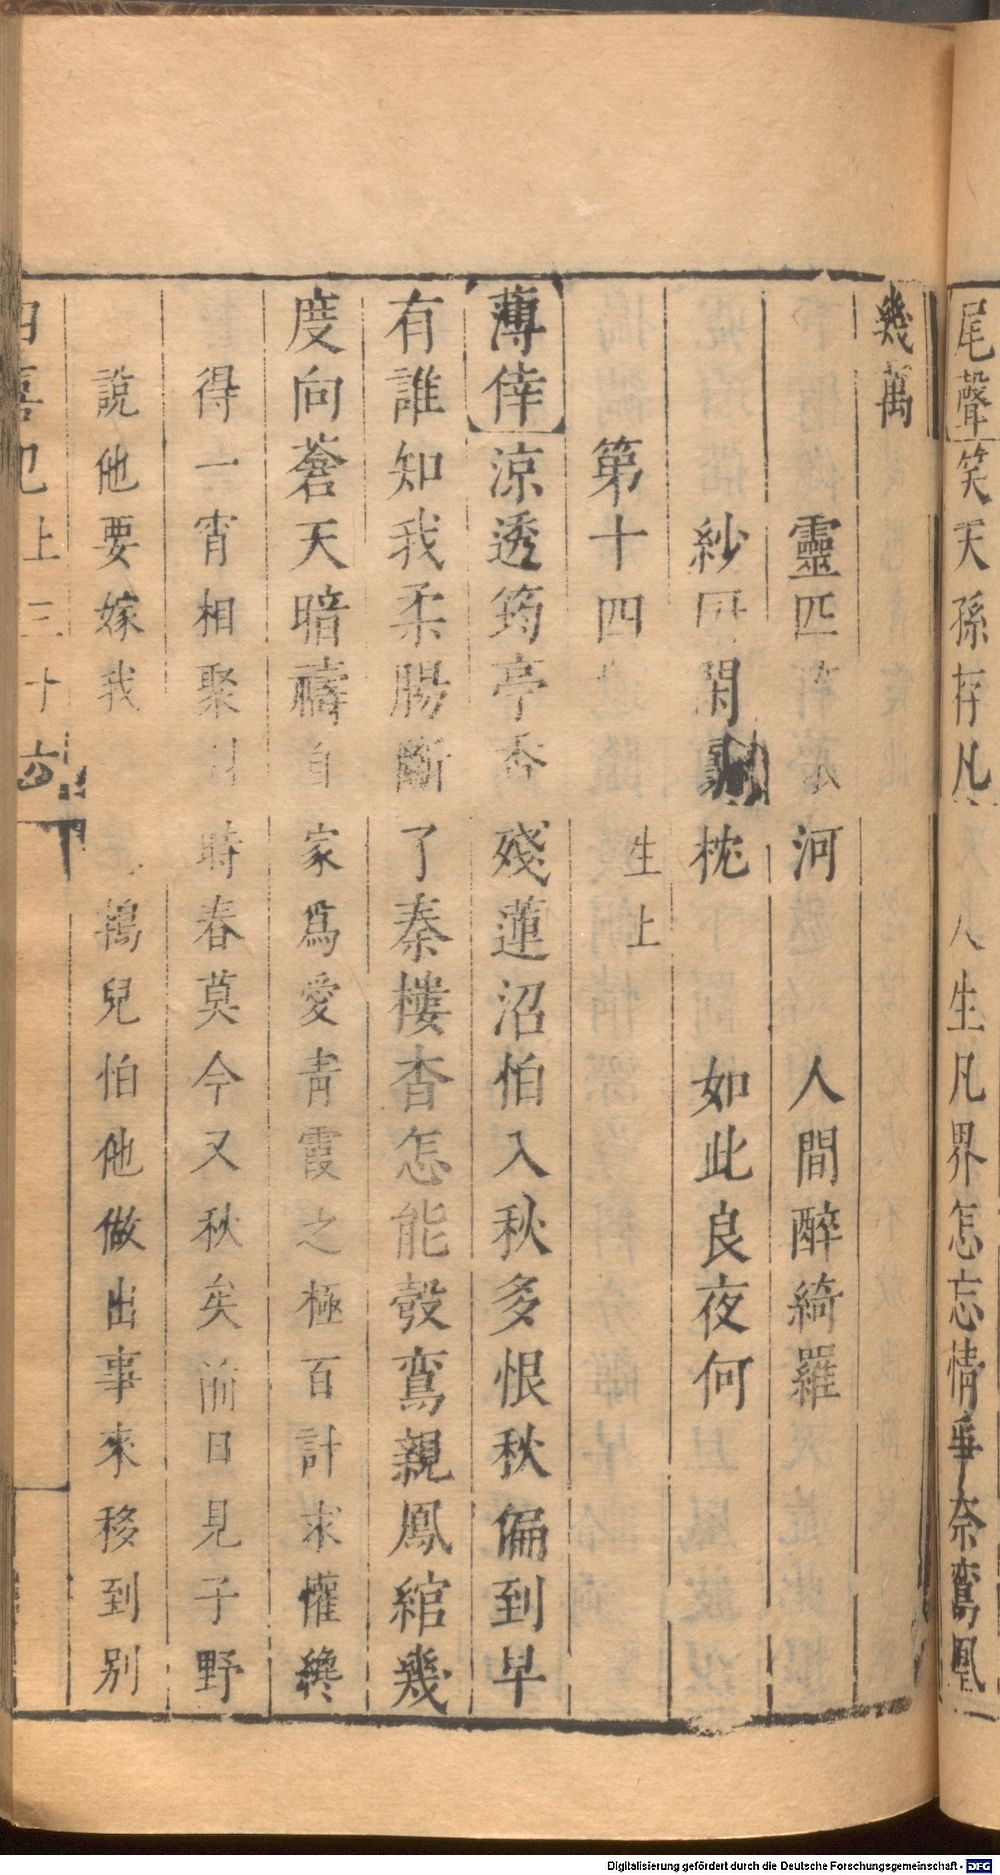 尾聲笑天孫存凡人生凡界怎忘情爭奈鸞凰
幾萬
靈匹 河 人間醉綺羅
紗 閑 枕 如此良夜何
第十四 生上
薄倖涼透筠亭香殘蓮沼怕入秋多恨秋偏到早
有誰知我柔腸斷了秦樓杳怎能彀鸞親鳳綰幾
度向蒼天暗禱自家為愛青霞之極百計求懽終
得一宵相聚別時春莫今又秋矣前日見子野
說他要嫁我 鴇兒怕他做出事來移到別
四喜記上三十六
Digitalisierung gefördert durch die Deutsche Forschungsgemeinschaft - DFG